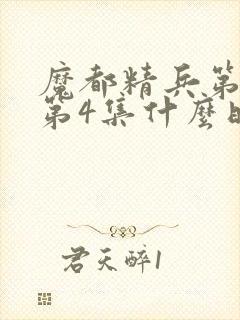 魔都精兵第
第4集什麼時
君天醉1